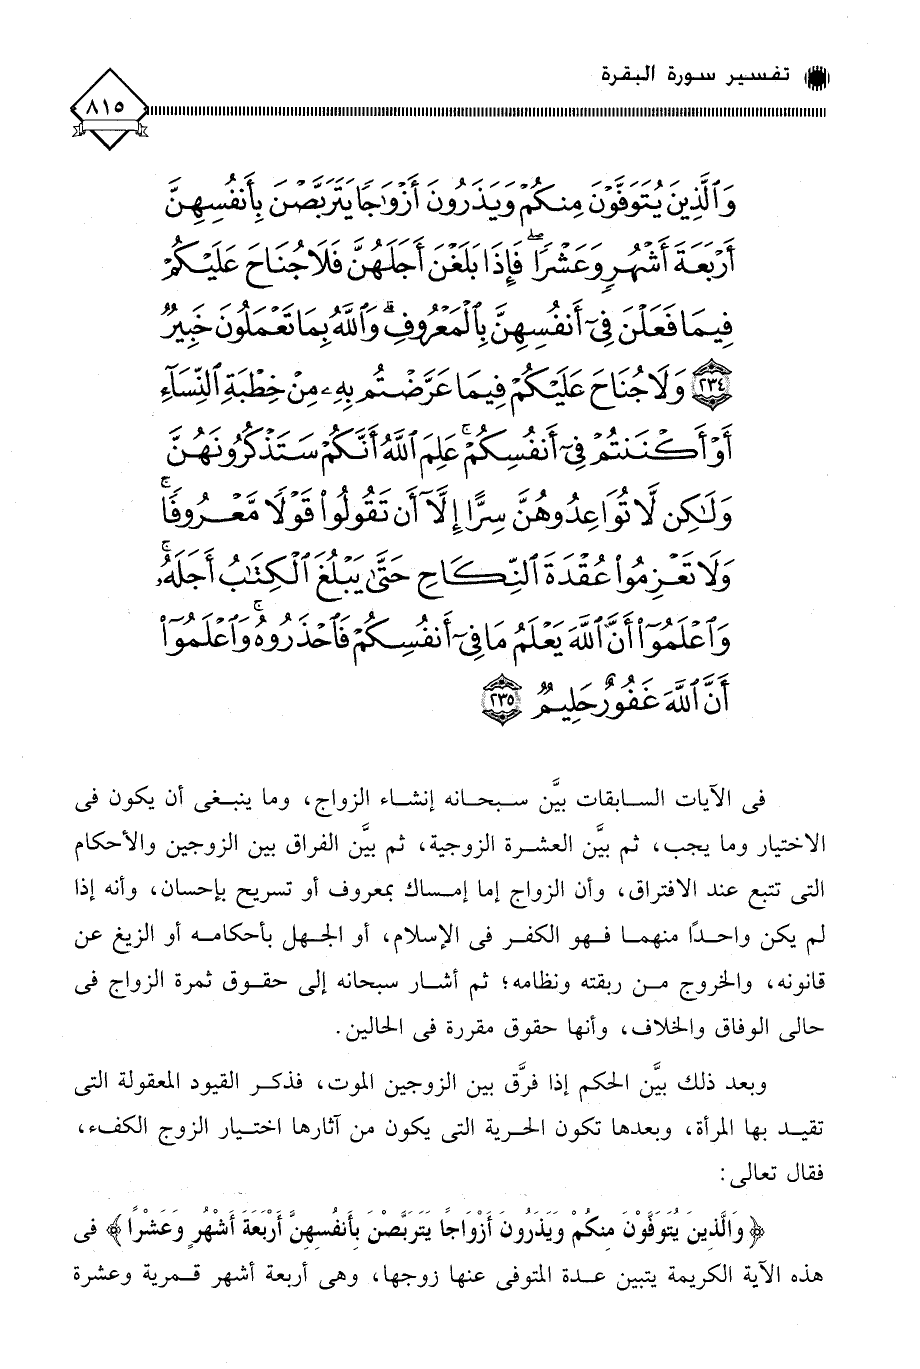 تفسير سورة البقرة
٨١٥
وَٱلَّذِينَ يُتَوَفَّوْنَ مِنكُمْ وَيَذَرُونَ أَزْوَٰجًا يَتَرَبَّصْنَ بِأَنفُسِهِنَّ
أَرْبَعَةَ أَشْهُرٍ وَعَشْرًا ۖ فَإِذَا بَلَغْنَ أَجَلَهُنَّ فَلَا جُنَاحَ عَلَيْكُمْ
فِيمَا فَعَلْنَ فِىٓ أَنفُسِهِنَّ بِٱلْمَعْرُوفِ ۗ وَٱللَّهُ بِمَا تَعْمَلُونَ خَبِيرٌ
٢٣٤ وَلَا جُنَاحَ عَلَيْكُمْ فِيمَا عَرَّضْتُم بِهِۦ مِنْ خِطْبَةِ ٱلنِّسَآءِ
أَوْ أَكْنَنتُمْ فِىٓ أَنفُسِكُمْ ۚ عَلِمَ ٱللَّهُ أَنَّكُمْ سَتَذْكُرُونَهُنَّ
وَلَٰكِن لَّا تُوَاعِدُوهُنَّ سِرًّا إِلَّآ أَن تَقُولُوا۟ قَوْلًا مَّعْرُوفًا ۚ
وَلَا تَعْزِمُوا۟ عُقْدَةَ ٱلنِّكَاحِ حَتَّىٰ يَبْلُغَ ٱلْكِتَٰبُ أَجَلَهُۥ ۚ
وَٱعْلَمُوٓا۟ أَنَّ ٱللَّهَ يَعْلَمُ مَا فِىٓ أَنفُسِكُمْ فَٱحْذَرُوهُ ۚ وَٱعْلَمُوٓا۟
أَنَّ ٱللَّهَ غَفُورٌ حَلِيمٌ ٢٣٥
فى الآيات السابقات بيَّن سبحانه إنشاء الزواج، وما ينبغى أن يكون فى
الاختيار وما يجب، ثم بيَّن العشرة الزوجية، ثم بيَّن الفراق بين الزوجين والأحكام
التى تتبع عند الافتراق، وأن الزواج إما إمساك بمعروف أو تسريح بإحسان، وأنه إذا
لم يكن واحدًا منهما فهو الكفر فى الإسلام، أو الجهل بأحكامه أو الزيغ عن
قانونه، والخروج من ربقته ونظامه؛ ثم أشار سبحانه إلى حقوق ثمرة الزواج فى
حالى الوفاق والخلاف، وأنها حقوق مقررة فى الحالين.
وبعد ذلك بيَّن الحكم إذا فرَّق بين الزوجين الموت، فذكر القيود المعقولة التى
تقيد بها المرأة، وبعدها تكون الحرية التى يكون من آثارها اختيار الزوج الكفء،
فقال تعالى:
﴿وَالَّذِينَ يُتَوَفَّوْنَ مِنكُمْ وَيَذَرُونَ أَزْوَاجًا يَتَرَبَّصْنَ بِأَنفُسِهِنَّ أَرْبَعَةَ أَشْهُرٍ وَعَشْرًا﴾ فى
هذه الآية الكريمة يتبين عدة المتوفى عنها زوجها، وهى أربعة أشهر قمرية وعشرة